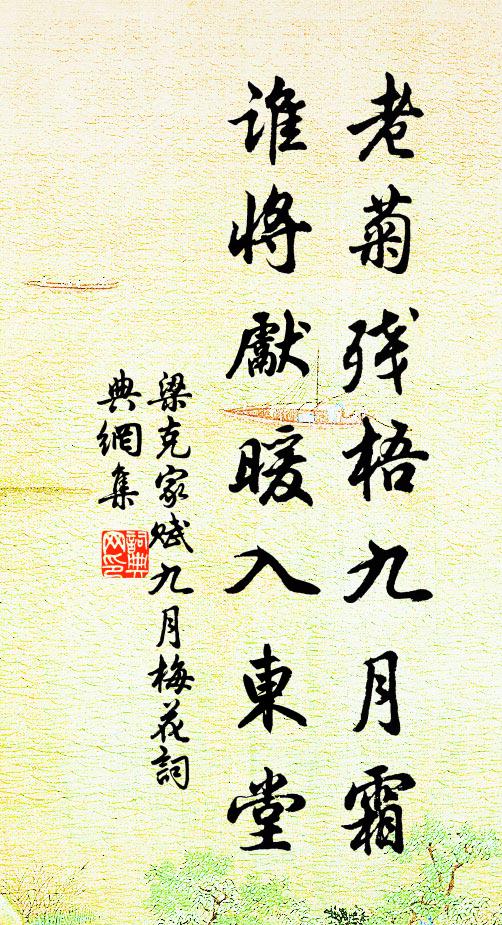 老菊残梧九月霜
谁將獻暖入東堂
梁克家赋九月梅花詞
典網集
詞典
网印